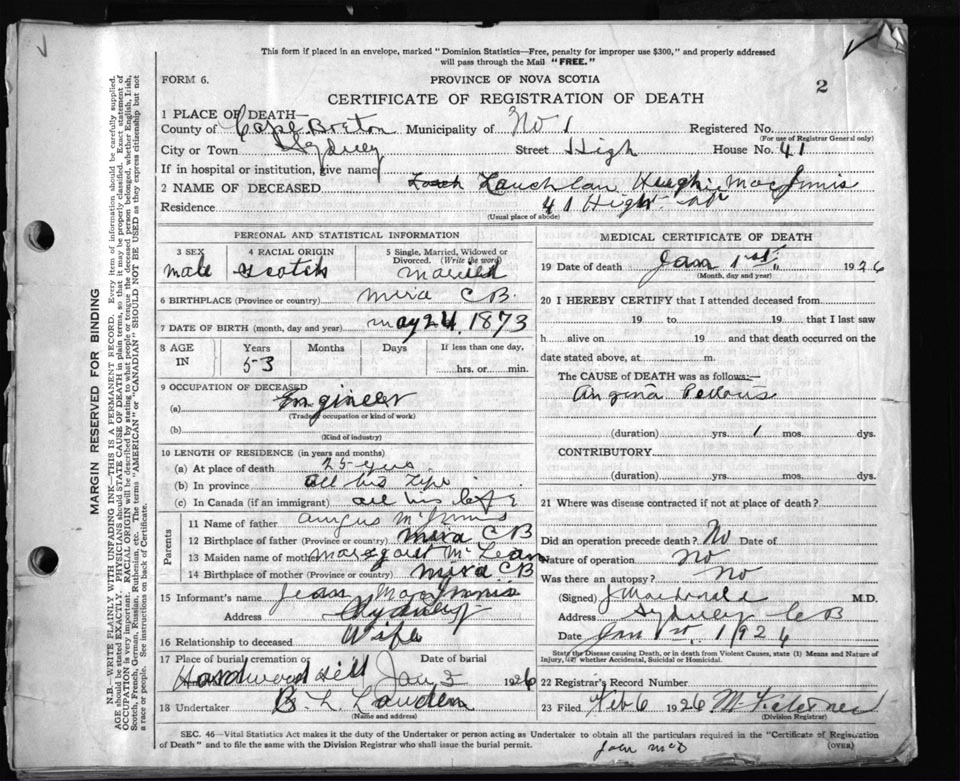 This form if placed in an envelope, marked "Dominion Statistics—Free, penalty for improper use $300," and properly addressed
will pass through the Mail "FREE."
FORM 6.
PROVINCE OF NOVA SCOTIA
2
CERTIFICATE OF REGISTRATION OF DEATH
1 PLACE OF DEATH—
County of Cape Breton Municipality of No 1 Registered No.
(For use of Registrar General only)
City or Town Sydney Street High House No. 41
If in hospital or institution, give name
2 NAME OF DECEASED Lauchlan Hugh MacInnis
Residence 41 High St
(Usual place of abode)
PERSONAL AND STATISTICAL INFORMATION
3 SEX male
4 RACIAL ORIGIN Scotch
5 Single, Married, Widowed or Divorced. (Write the word) married
6 BIRTHPLACE (Province or country) Mira C B.
7 DATE OF BIRTH (month, day and year) May 24, 1873
8 AGE IN Years 53 Months Days If less than one day, hrs. or min.
9 OCCUPATION OF DECEASED
(a) Engineer
(Trade, occupation or kind of work)
(b)
(Kind of industry)
10 LENGTH OF RESIDENCE (in years and months)
(a) At place of death 25 yrs.
(b) In province all his life
(c) In Canada (if an immigrant) all his life
Parents
11 Name of father Angus McInnis
12 Birthplace of father (Province or country) Mira C B
13 Maiden name of mother Margaret McLean
14 Birthplace of mother (Province or country) Mira C B
15 Informant's name Jean MacInnis
Address Sydney
16 Relationship to deceased Wife
17 Place of burial, cremation or Hardwood Hill
Date of burial Jan 3 1926
18 Undertaker B. L. Lauden
(Name and address)
MEDICAL CERTIFICATE OF DEATH
19 Date of death Jan 1st, 1926
(Month, day and year)
20 I HEREBY CERTIFY that I attended deceased from
19 to 19 that I last saw
h alive on 19 and that death occurred on the
date stated above, at m.
The CAUSE of DEATH was as follows:—
Angina Pectoris
(duration) yrs. 1 mos. dys.
CONTRIBUTORY
(duration) yrs. mos. dys.
21 Where was disease contracted if not at place of death?
Did an operation precede death? No Date of
Nature of operation No
Was there an autopsy? No
(Signed) J MacDonald M.D.
Address Sydney C B
Date Jan 1st, 1926
State the Disease causing Death, or in death from Violent Causes, state (1) Means and Nature of
Injury, (2) whether Accidental, Suicidal or Homicidal.
22 Registrar's Record Number
23 Filed Feb 6 1926
(Division Registrar)
SEC. 46—Vital Statistics Act makes it the duty of the Undertaker or person acting as Undertaker to obtain all the particulars required in the "Certificate of Registration
of Death" and to file the same with the Division Registrar who shall issue the burial permit.
(OVER)
MARGIN RESERVED FOR BINDING
N.B.—WRITE PLAINLY WITH UNFADING INK—THIS IS A PERMANENT RECORD. Every item of information should be carefully supplied.
AGE should be stated EXACTLY. PHYSICIANS should STATE CAUSE OF DEATH in plain terms, so that it may be properly classified. Exact statement of
OCCUPATION is very important. RACIAL ORIGIN will be described by stating to what people or tongue the deceased person belonged, whether English, Irish,
Scotch, French, German, Russian, Ruthenian, etc. The terms "AMERICAN" or "CANADIAN" SHOULD NOT BE USED as they express citizenship but not
a race or people. See instructions on back of Certificate.